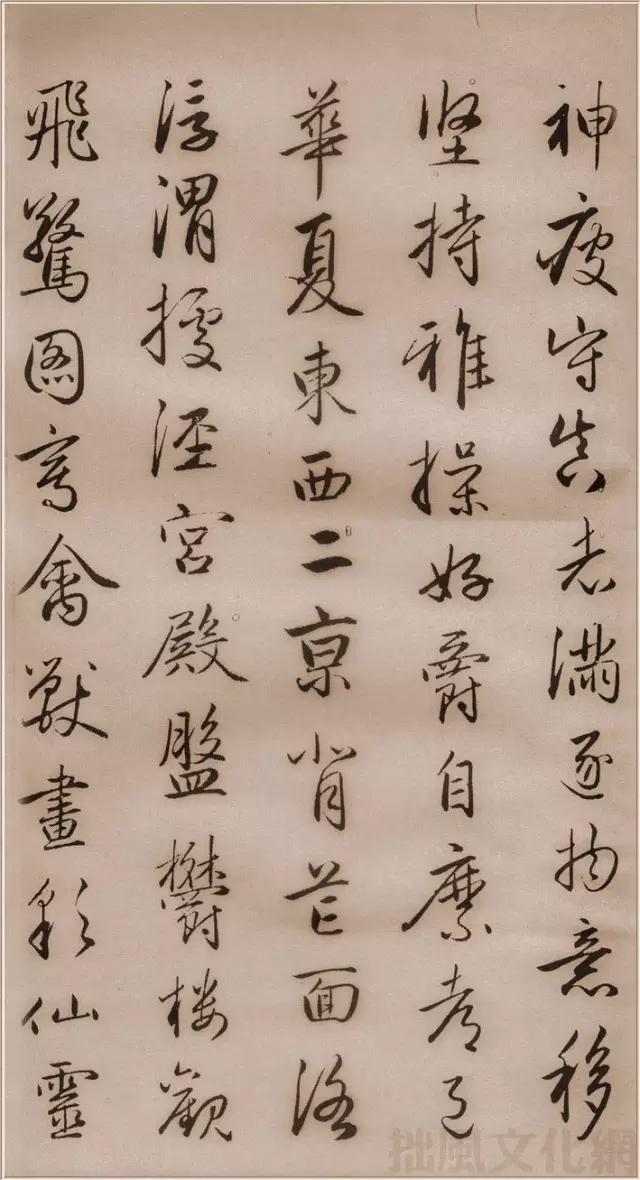 神疲守真志滿逐物意移
坚持雅操好爵自縻都邑
華夏東西二京背芒面洛
浮渭據涇宮殿盤鬱楼觀
飛驚圖寫禽獸畫彩仙靈
拙風文化網